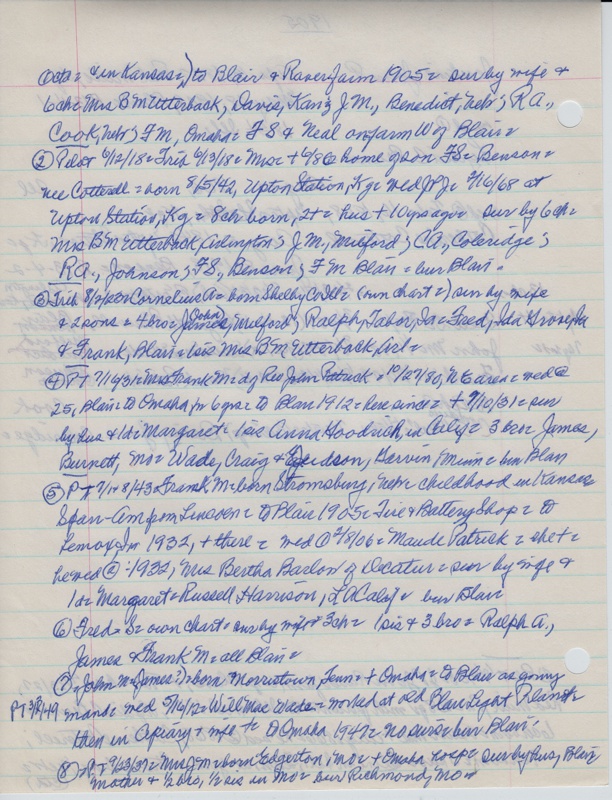 Octa = & in Kansas =) to Blair & Raver farm 1905 = sur by wife &
6 ch = Mrs B M Utterback, Davis, Kans; J M., Benedict, Nebr; R A.,
Cook, Nebr; F M, Omaha = F S & Neal on farm W of Blair =
② Pilot 6/12/18 = Trib 6/13/18 = Mrs = + 6/8 @ home of son FS = Benson =
nee Cotterell = born 8/5/42, Upton Station, Ky = wed J W J = 9/16/68 at
Upton Station, Ky = 8 ch born, 2 + = hus + 10 yrs ago = sur by 6 ch =
Mrs B M Utterback, Arlington; J M., Milford; C A., Coleridge;
R A., Johnson; F S., Benson; F M Blair = bur Blair =
③ Trib Cornelius A = born Shelby Co Ill = (own chart =) sur by wife
& 2 sons = 4 bro = J (John) James, Milford; Ralph, Tabor, Ia = Fred, Ida Grove, Ia
& Frank, Blair = 1 sis Mrs B M Utterback, Arl =
④ PT 7/16/31 = Mrs Frank M = d of Rev John Patrick = 10/27/80, = wed @
25, Blair = to Omaha for 6 yrs = to Blair 1912 = here since = + 7/10/31 = sur
by hus & 1 d = Margaret = 1 sis Anna Goodrich, in Calif = 3 bro = James,
Burnett, Mo = Wade, Craig & , Minn = bur Blair
⑤ PT 8/43 = Frank M = born Stromsburg, Nebr = childhood in Kansas
Span-Am from Lincoln = to Blair 1905 = Tire & Battery Shop = to
Lemoyne 1932, + there = wed ① 2/8/06 = Maude Patrick = she + =
he wed ② = 1932, Mrs Bertha Barlow of Decatur = sur by wife &
1 d = Margaret = Russell Harrison, L A Calif = bur Blair
⑥ Fred S = own chart = sur by wife & 3 ch = 1 sis & 3 bro = Ralph A.,
James & Frank M = all Blair =
⑦ John M (James?) = born Morristown, Tenn = + Omaha = to Blair as young
PT 3/3/49 man = wed 5/16/12 = Willi Mae Wade = worked at old Blair Light Plant =
then in Apiary = wife + = to Omaha 1947 = no surs = bur Blair
⑧ PT 9/23/37 = Mrs J M = born Edgerton, Mo = + Omaha hosp = sur by hus, Blair
mother & ½ bro, ½ sis in Mo = bur Richmond, Mo =